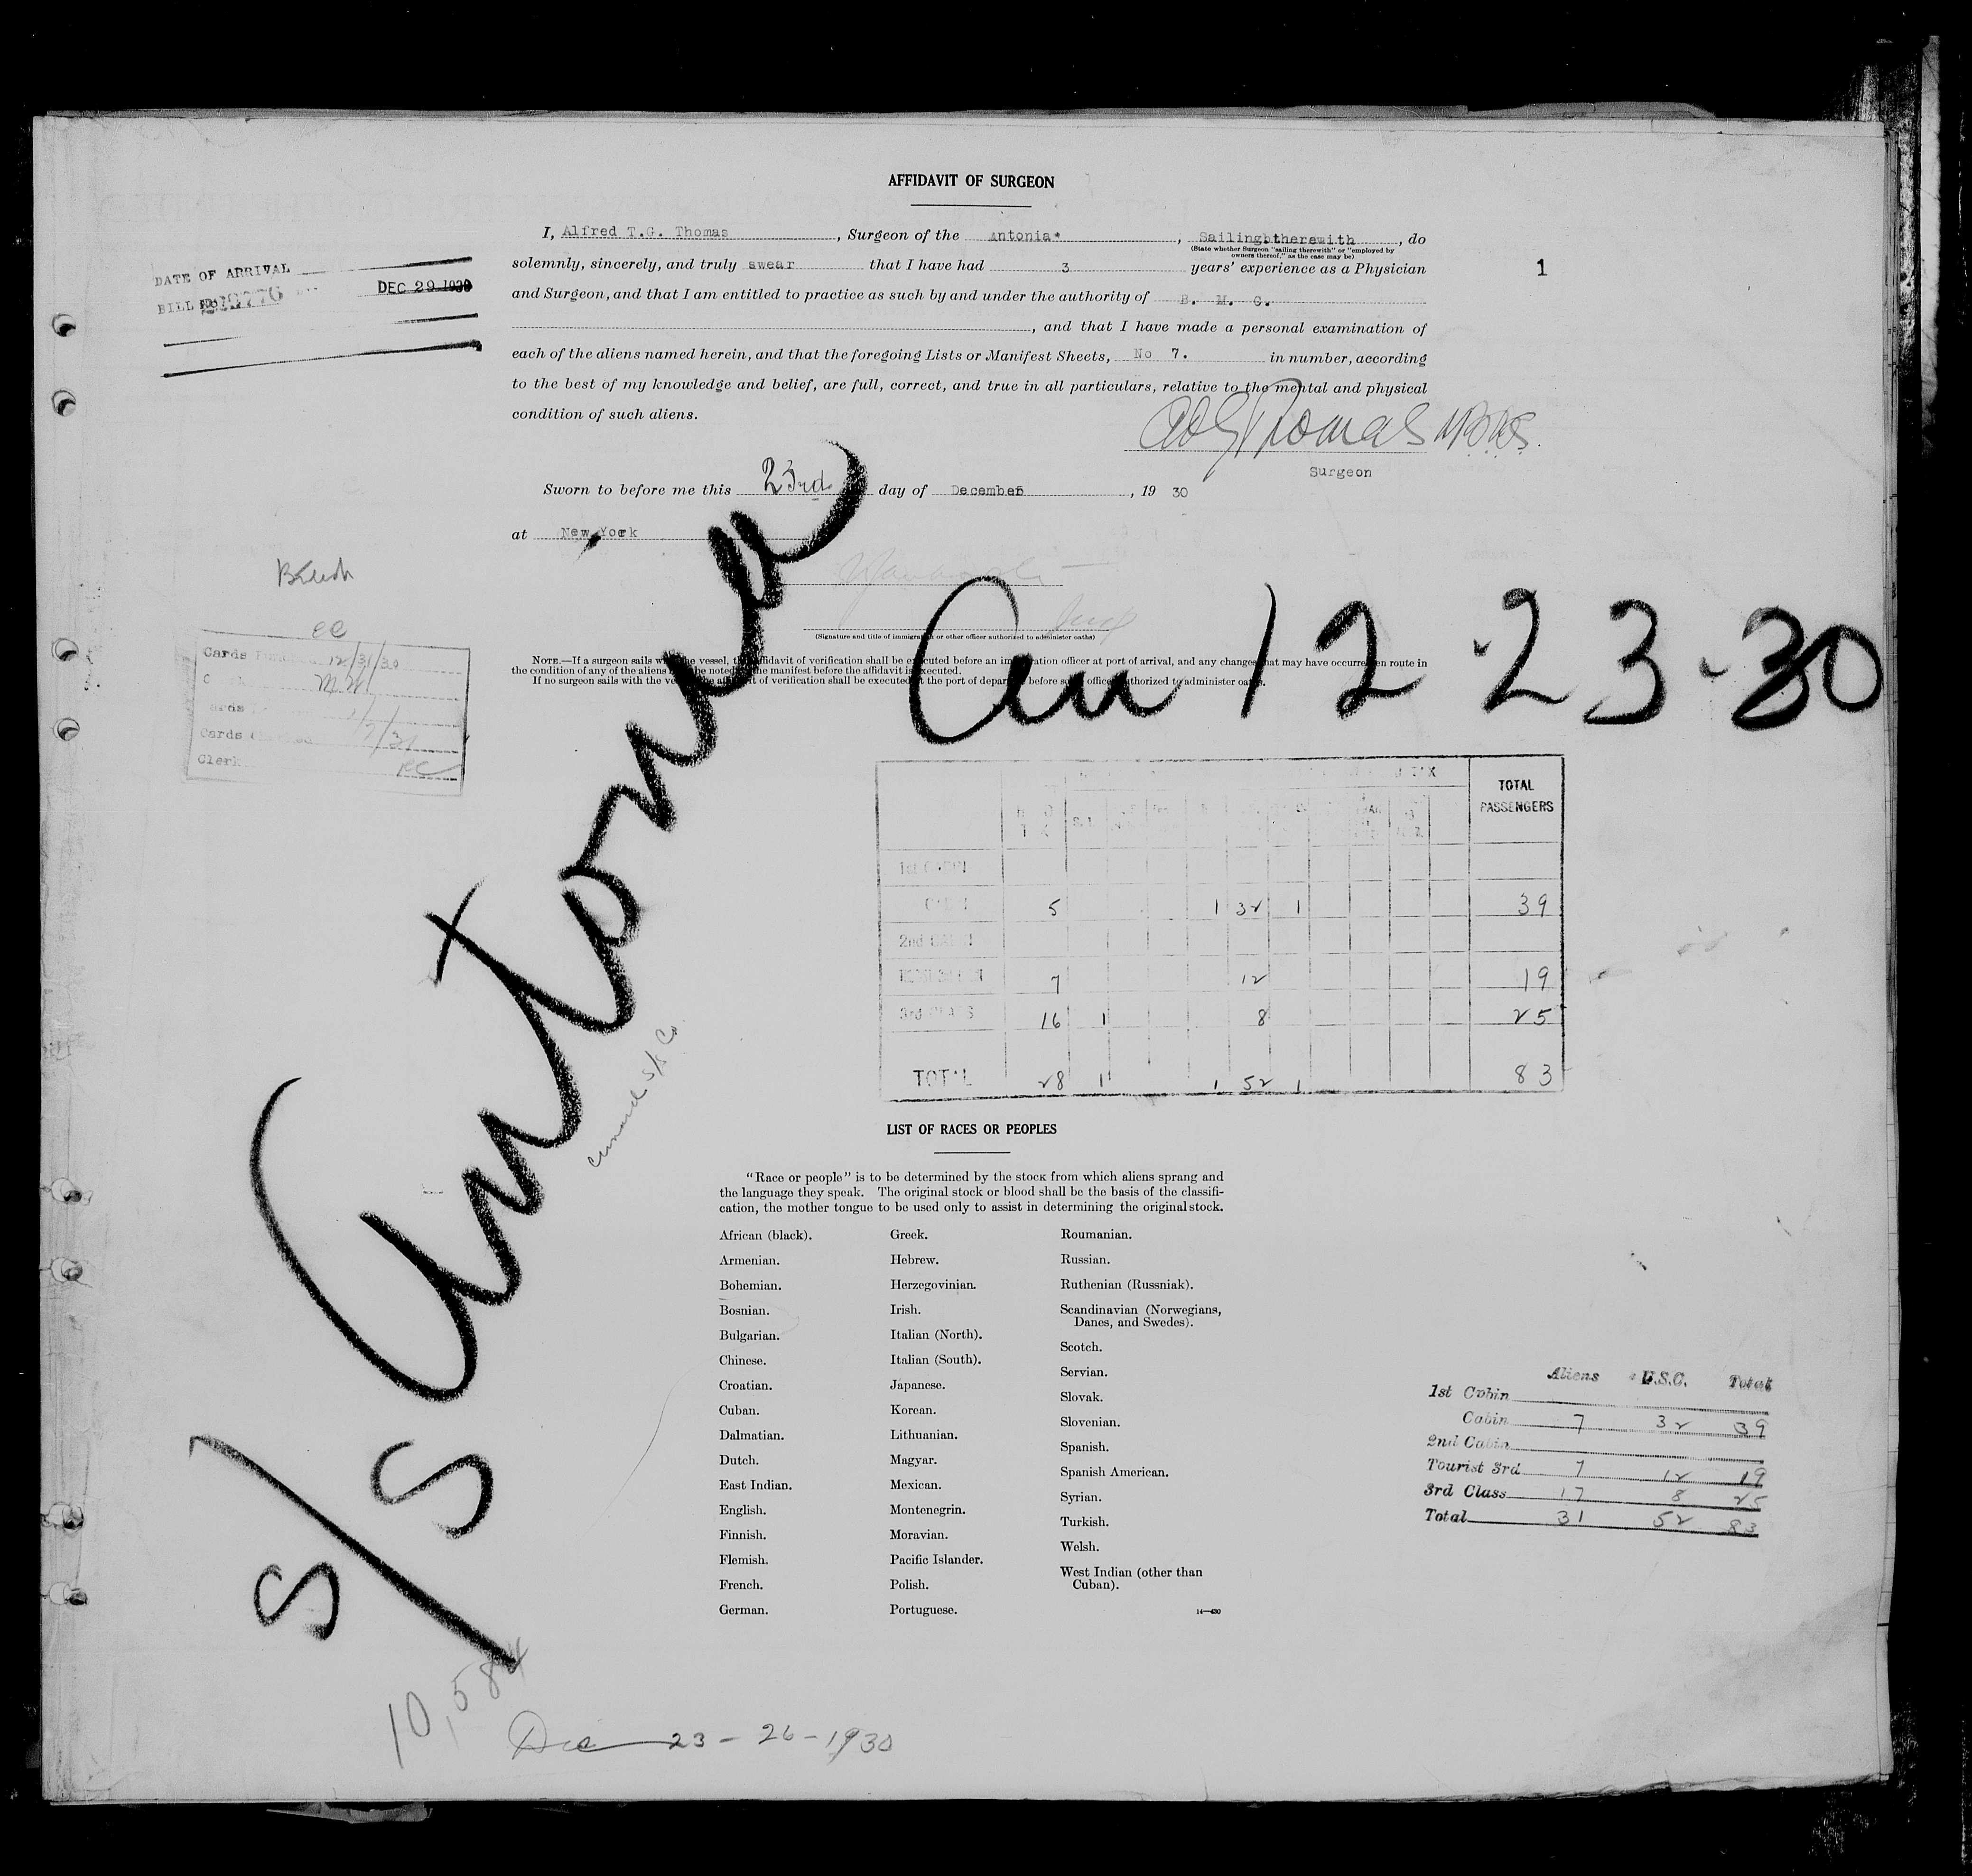 AFFIDAVIT OF SURGEON
I, Alfred T.G. Thomas, Surgeon of the Antonia*, Sailing therewith, do
(State whether Surgeon "sailing therewith" or "employed by
owners thereof," as the case may be)
solemnly, sincerely, and truly swear that I have had 3 years' experience as a Physician
1
and Surgeon, and that I am entitled to practice as such by and under the authority of B. M. C.
, and that I have made a personal examination of
each of the aliens named herein, and that the foregoing Lists or Manifest Sheets, No 7. in number, according
to the best of my knowledge and belief, are full, correct, and true in all particulars, relative to the mental and physical
condition of such aliens.
Thomas
Surgeon
Sworn to before me this 23rd day of December, 19 30
at New York
(Signature and title of immigration or other officer authorized to administer oaths)
NOTE.—If a surgeon sails with the vessel, the affidavit of verification shall be executed before an immigration officer at port of arrival, and any changes that may have occurred en route in
the condition of any of the aliens shall be noted on the manifest before the affidavit is executed.
If no surgeon sails with the vessel, the affidavit of verification shall be executed at the port of departure before some officer authorized to administer oaths.
DATE OF ARRIVAL
DEC 29 1930
BILL NO.
Cards 12/31/30
Cards
Cards
Clerk
S/S Antonia
Cunard S/S Co
Arr 12-23-30
TOTAL
PASSENGERS
1st CABIN
CABIN 5 1 32 1 39
2nd CABIN
7 12 19
3rd CLASS 16 1 8 25
TOTAL 28 1 1 52 1 83
LIST OF RACES OR PEOPLES
"Race or people" is to be determined by the stock from which aliens sprang and
the language they speak. The original stock or blood shall be the basis of the classifi-
cation, the mother tongue to be used only to assist in determining the original stock.
African (black).
Armenian.
Bohemian.
Bosnian.
Bulgarian.
Chinese.
Croatian.
Cuban.
Dalmatian.
Dutch.
East Indian.
English.
Finnish.
Flemish.
French.
German.
Greek.
Hebrew.
Herzegovinian.
Irish.
Italian (North).
Italian (South).
Japanese.
Korean.
Lithuanian.
Magyar.
Mexican.
Montenegrin.
Moravian.
Pacific Islander.
Polish.
Portuguese.
Roumanian.
Russian.
Ruthenian (Russniak).
Scandinavian (Norwegians,
Danes, and Swedes).
Scotch.
Servian.
Slovak.
Slovenian.
Spanish.
Spanish American.
Syrian.
Turkish.
Welsh.
West Indian (other than
Cuban).
14—430
Aliens U.S.C. Total
1st Cabin
Cabin 7 32 39
2nd Cabin
Tourist 3rd 7 12 19
3rd Class 17 8 25
Total 31 52 83
10,584
Dec 23 - 26 - 1930